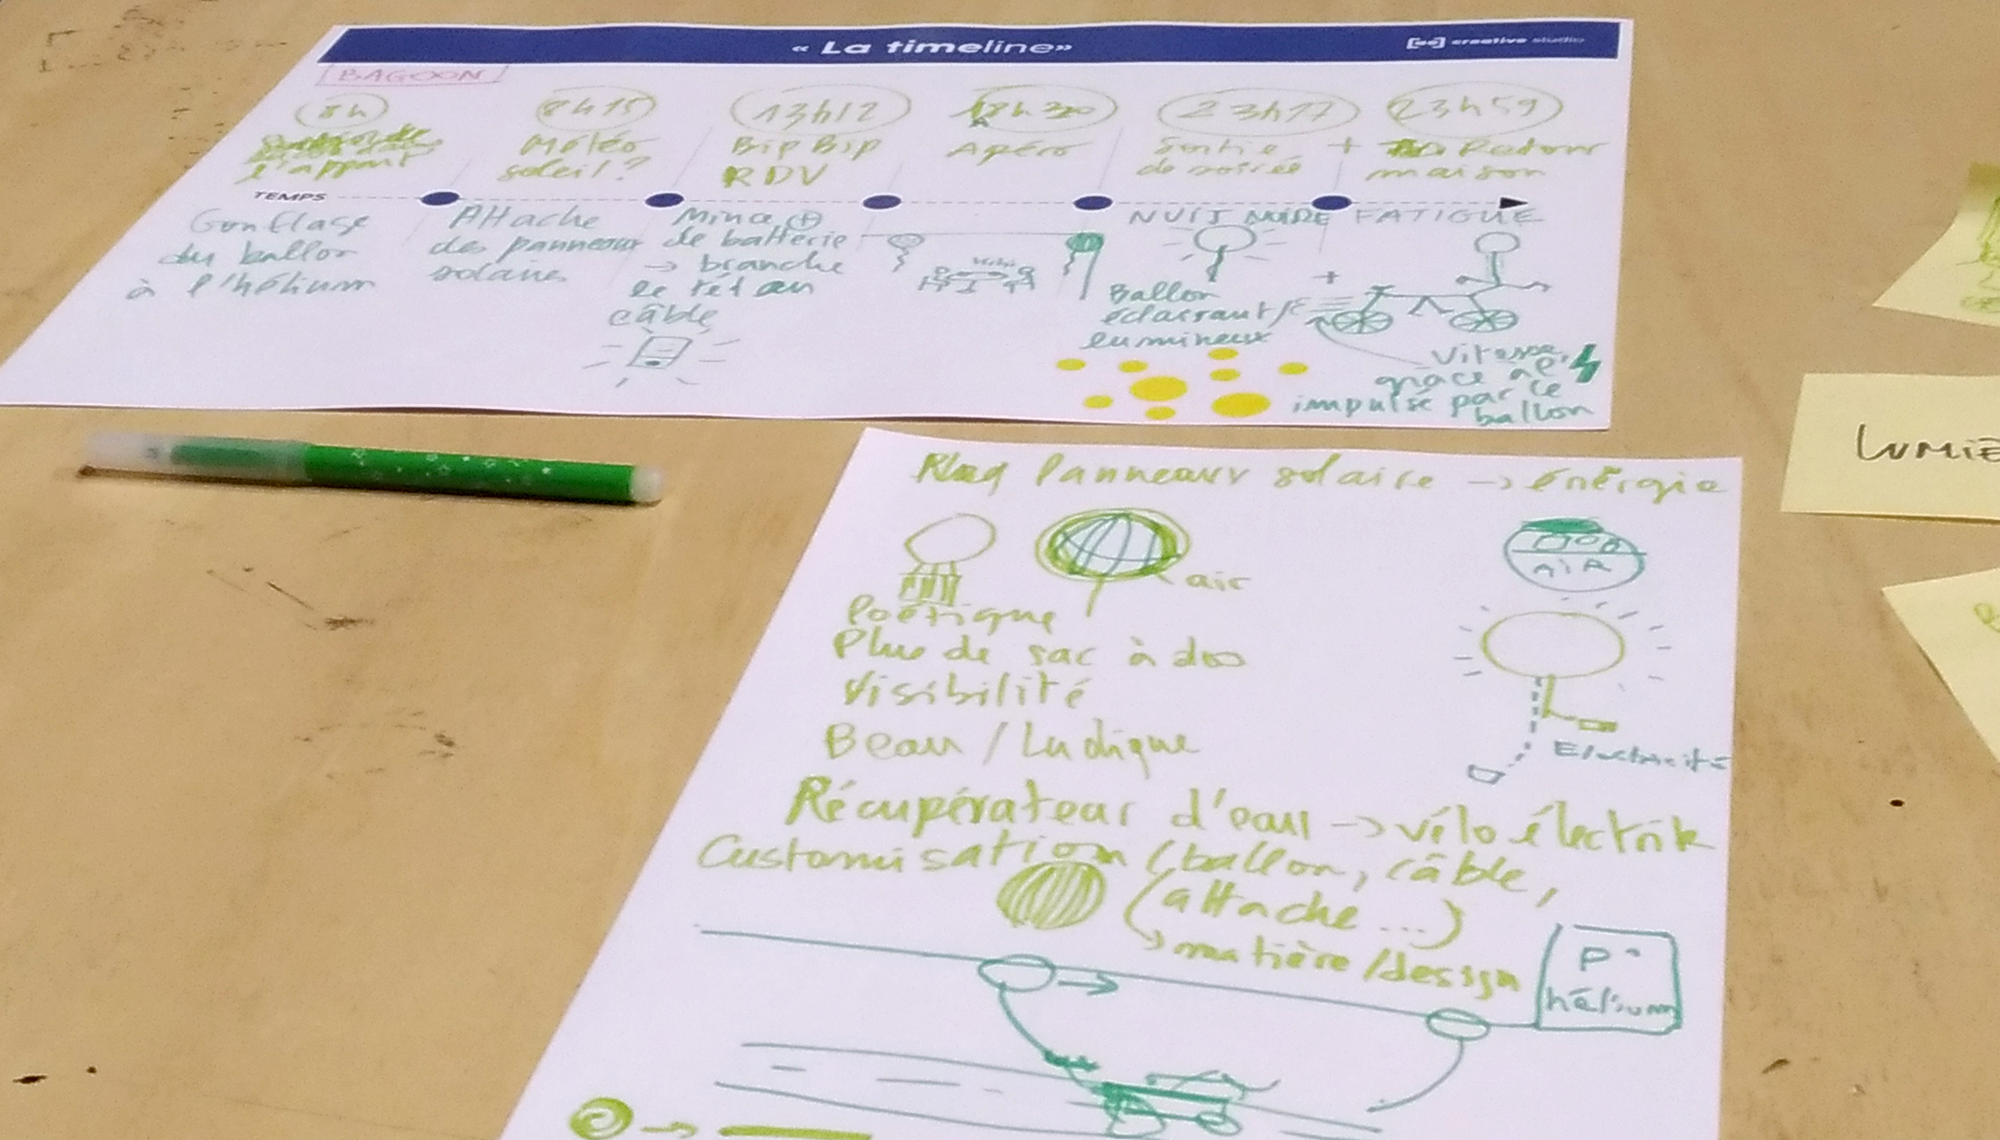 « La timeline»
creative studio
BAGOON
8h
8h15
13h12
18h30
23h17
23h59
l'appart
Météo
soleil?
Bip Bip
RDV
Apéro
Sortie
de soirée
+
Retour
maison
TEMPS
Gonflage
du ballon
à l'hélium
Attache
des panneaux
solaires
Mince
de batterie
→ branche
le tél au
câble
NUIT NOIRE
FATIGUE
Ballon
éclairant/
lumineux
+
Vitesse
grâce
impulsé par le
ballon
Panneaux solaire → énérgie
air
AIR
Poétique
Plus de sac à dos
Visibilité
Beau / Ludique
Electricité
Récupérateur d'eau → vélo électrik
Customisation (ballon, câble,
(attache ...)
→ matière/design
P°
hélium
LUMIE